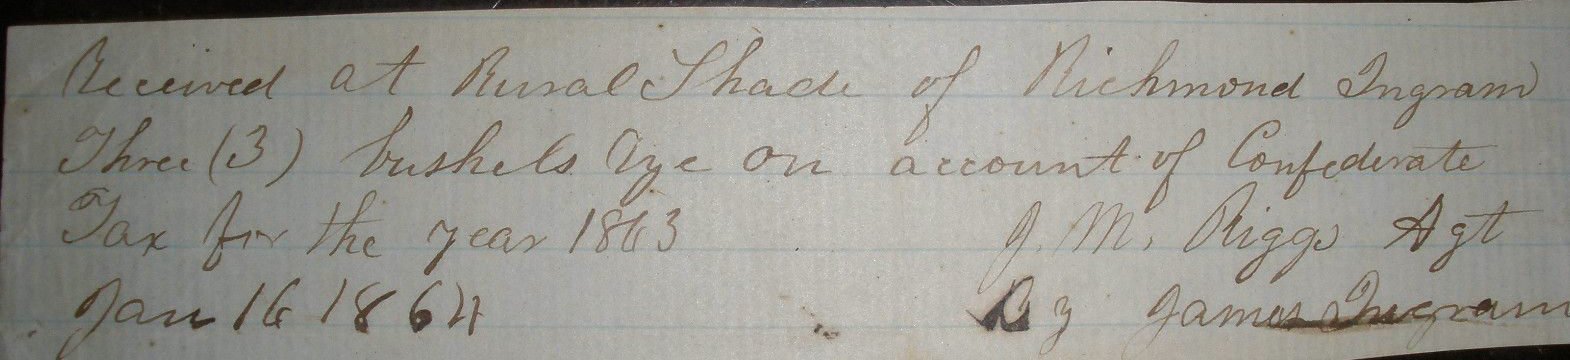 Received at Rural Shade of Richmond Ingram
Three (3) bushels Rye on account of Confederate
Tax for the year 1863 J. M. Riggs Agt
Jan 16 1864 By James Ingram